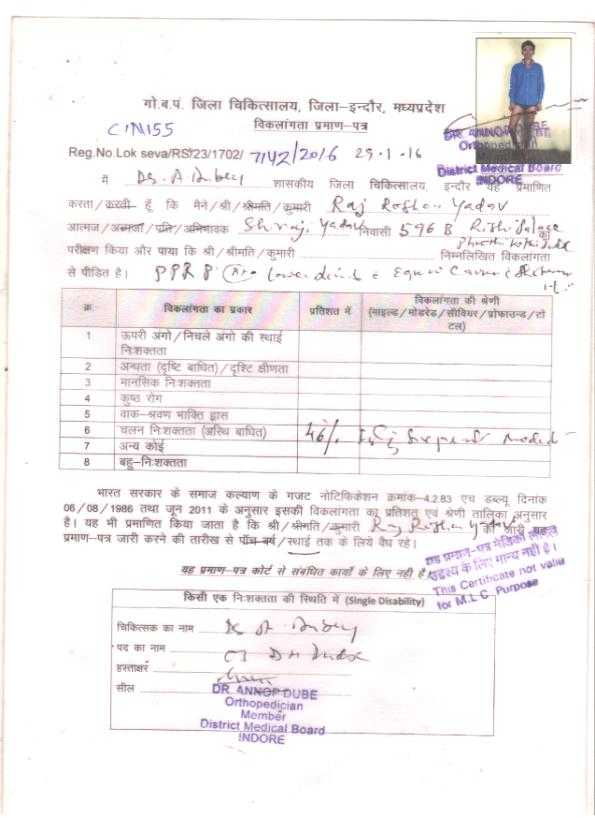 गो.ब.पं. जिला चिकित्सालय, जिला–इन्दौर, मध्यप्रदेश
विकलांगता प्रमाण–पत्र
CIN155
Reg.No.Lok seva/RS/23/1702/ 7142/2016 29-1-16
DR. ANNOP DUBE
District Medical Board
INDORE
मै शासकीय जिला चिकित्सालय, इन्दौर यह प्रमाणित
करता/करती हूँ कि मैने/श्री/श्रीमति/कुमारी Raj Roshan Yadav
आत्मज/आत्मजा/पति/अभिभावक Yadav निवासी 596 B Rishi Palace
परीक्षण किया और पाया कि श्री/श्रीमति/कुमारी निम्नलिखित विकलांगता
से पीड़ित है। PPRP
क्र. विकलांगता का प्रकार प्रतिशत में विकलांगता की श्रेणी (माइल्ड/मोडरेड/सीवियर/प्रोफाउन्ड/टोटल)
1 ऊपरी अंगो/निचले अंगो की स्थाई निःशक्तता
2 अन्धता (दृष्टि बाधित)/दृश्टि क्षीणता
3 मानसिक निःशक्तता
4 कुष्ठ रोग
5 वाक–श्रवण भाक्ति ह्रास
6 चलन निःशक्तता (अस्थि बाधित) 46%
7 अन्य कोई
8 बहु–निःशक्तता
भारत सरकार के समाज कल्याण के गजट नोटिफिकेशन क्रमांक–4.2.83 एच डब्ल्यू दिनांक
06/08/1986 तथा जून 2011 के अनुसार इसकी विकलांगता का प्रतिशत् एवं श्रेणी तालिका अनुसार
है। यह भी प्रमाणित किया जाता है कि श्री/श्रीमति/कुमारी Raj Roshan Yadav को जारी यह
प्रमाण–पत्र जारी करने की तारीख से पाँच वर्ष/स्थाई तक के लिये वैध रहे।
यह प्रमाण–पत्र कोर्ट से संबंधित कार्यो के लिए नही है
यह प्रमाण–पत्र मेडिको लीगल
उद्देश्य के लिए मान्य नही है।
This Certificate not valid
for M.L.C. Purpose
किसी एक निःशक्तता की स्थिति में (Single Disability)
चिकित्सक का नाम
पद का नाम
हस्ताक्षर
सील
DR. ANNOP DUBE
Orthopedician
Member
District Medical Board
INDORE